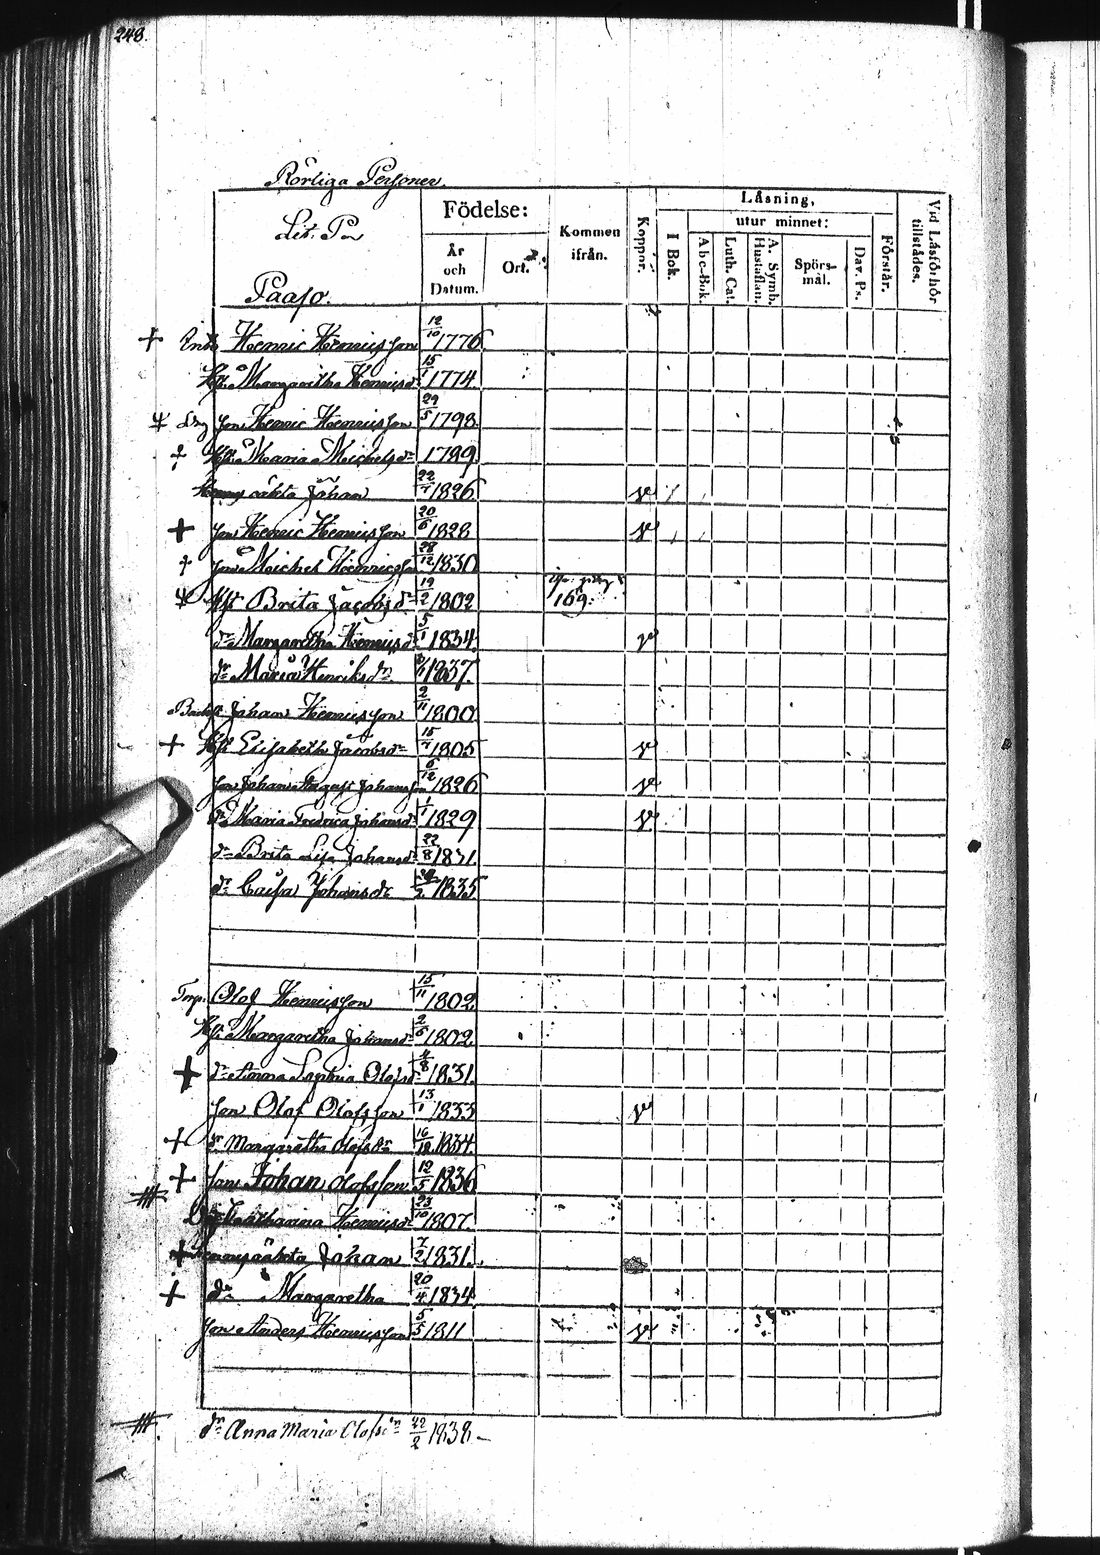 248.
Rörliga Personer.
Lit. P
Paaso.
Födelse:
År och Datum.
Ort.
Kommen ifrån.
Koppor.
Läsning,
I Bok.
utur minnet:
Abc-Bok.
Luth. Cat.
A. Symb. Hustaflan.
Spörsmål.
Dav. Ps.
Förstår.
Vid Läsförhör tillstädes.
+ Henric Henricsson 12/10 1776
Margaretha Henricsdr 15/1 1774
Son Henric Henricsson 29/5 1798
+ Maria Michelsdr 1789
oäkta Johan 22/7 1826 v
+ Son Henric Henricsson 20/6 1828 v
+ Son Michel Henricsson 28/12 1830
Brita Jacobsdr 19/2 1802 169.
dr Margaretha Henricsdr 5/1 1834 v
dr Maria Henriksdr 1837.
Johan Henricsson 2/11 1800
+ Elisabeth Jacobsdr 15/7 1805 v
Son Johan August Johansson 6/12 1826 v
dr Maria Fredrica Johansdr 1/1 1829 v
dr Brita Lisa Johansdr 22/8 1831
dr Caisa Johansdr 1835
Torp. Olof Henricsson 15/11 1802
Margaretha Johansdr 2/6 1802
+ dr Anna Sophia Olofsdr 4/8 1831.
Son Olof Olofsson 13/1 1833 v
+ dr Margaretha Olofsdr 16/12 1834.
+ Son Johan Olofsson 12/5 1836
Catharina Henricsdr 23/10 1807.
+ oäkta Johan 7/2 1831.
+ dr Margaretha 20/4 1834
Son Anders Henricsson 5/5 1811 v
dr Anna Maria Olofsdr 22/2 1838